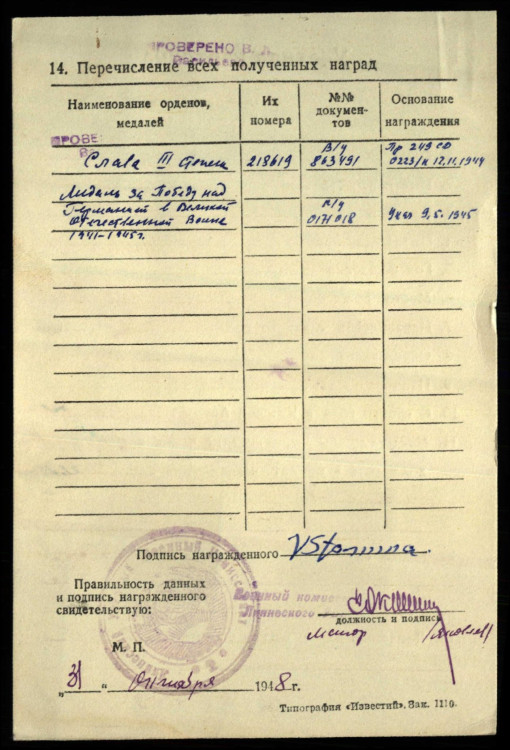 ПРОВЕРЕНО В. Л.
14. Перечисление всех полученных наград
Наименование орденов, медалей
Их номера
№№ документов
Основание награждения
ПРОВЕ
Слава III Степени 218619 В/у 863491 Пр 249 СД 0223/н 12.11.1944
Медаль за Победу над
Германией в Великой
Отечественной Войне В/у 0171018 Указ 9.5.1945
1941–1945г.
Подпись награжденного
Правильность данных
и подпись награжденного
свидетельствую:
Военный
должность и подпись
Майор
М. П.
„31“ октября 1948 г.
Типография «Известий». Зак. 1110.